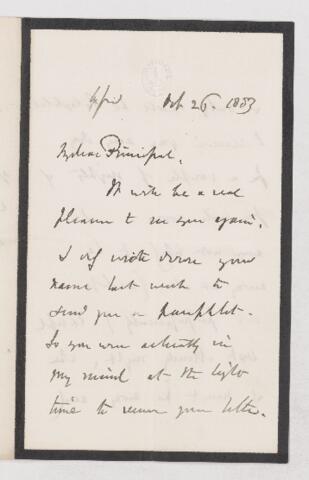 Oct 26. 1883
My dear Principal,
It will be a real
pleasure to me your again.
I only wrote down your
name last week to
send you a pamphlet.
So you were actually in
my mind at the right
time to receive your letter.